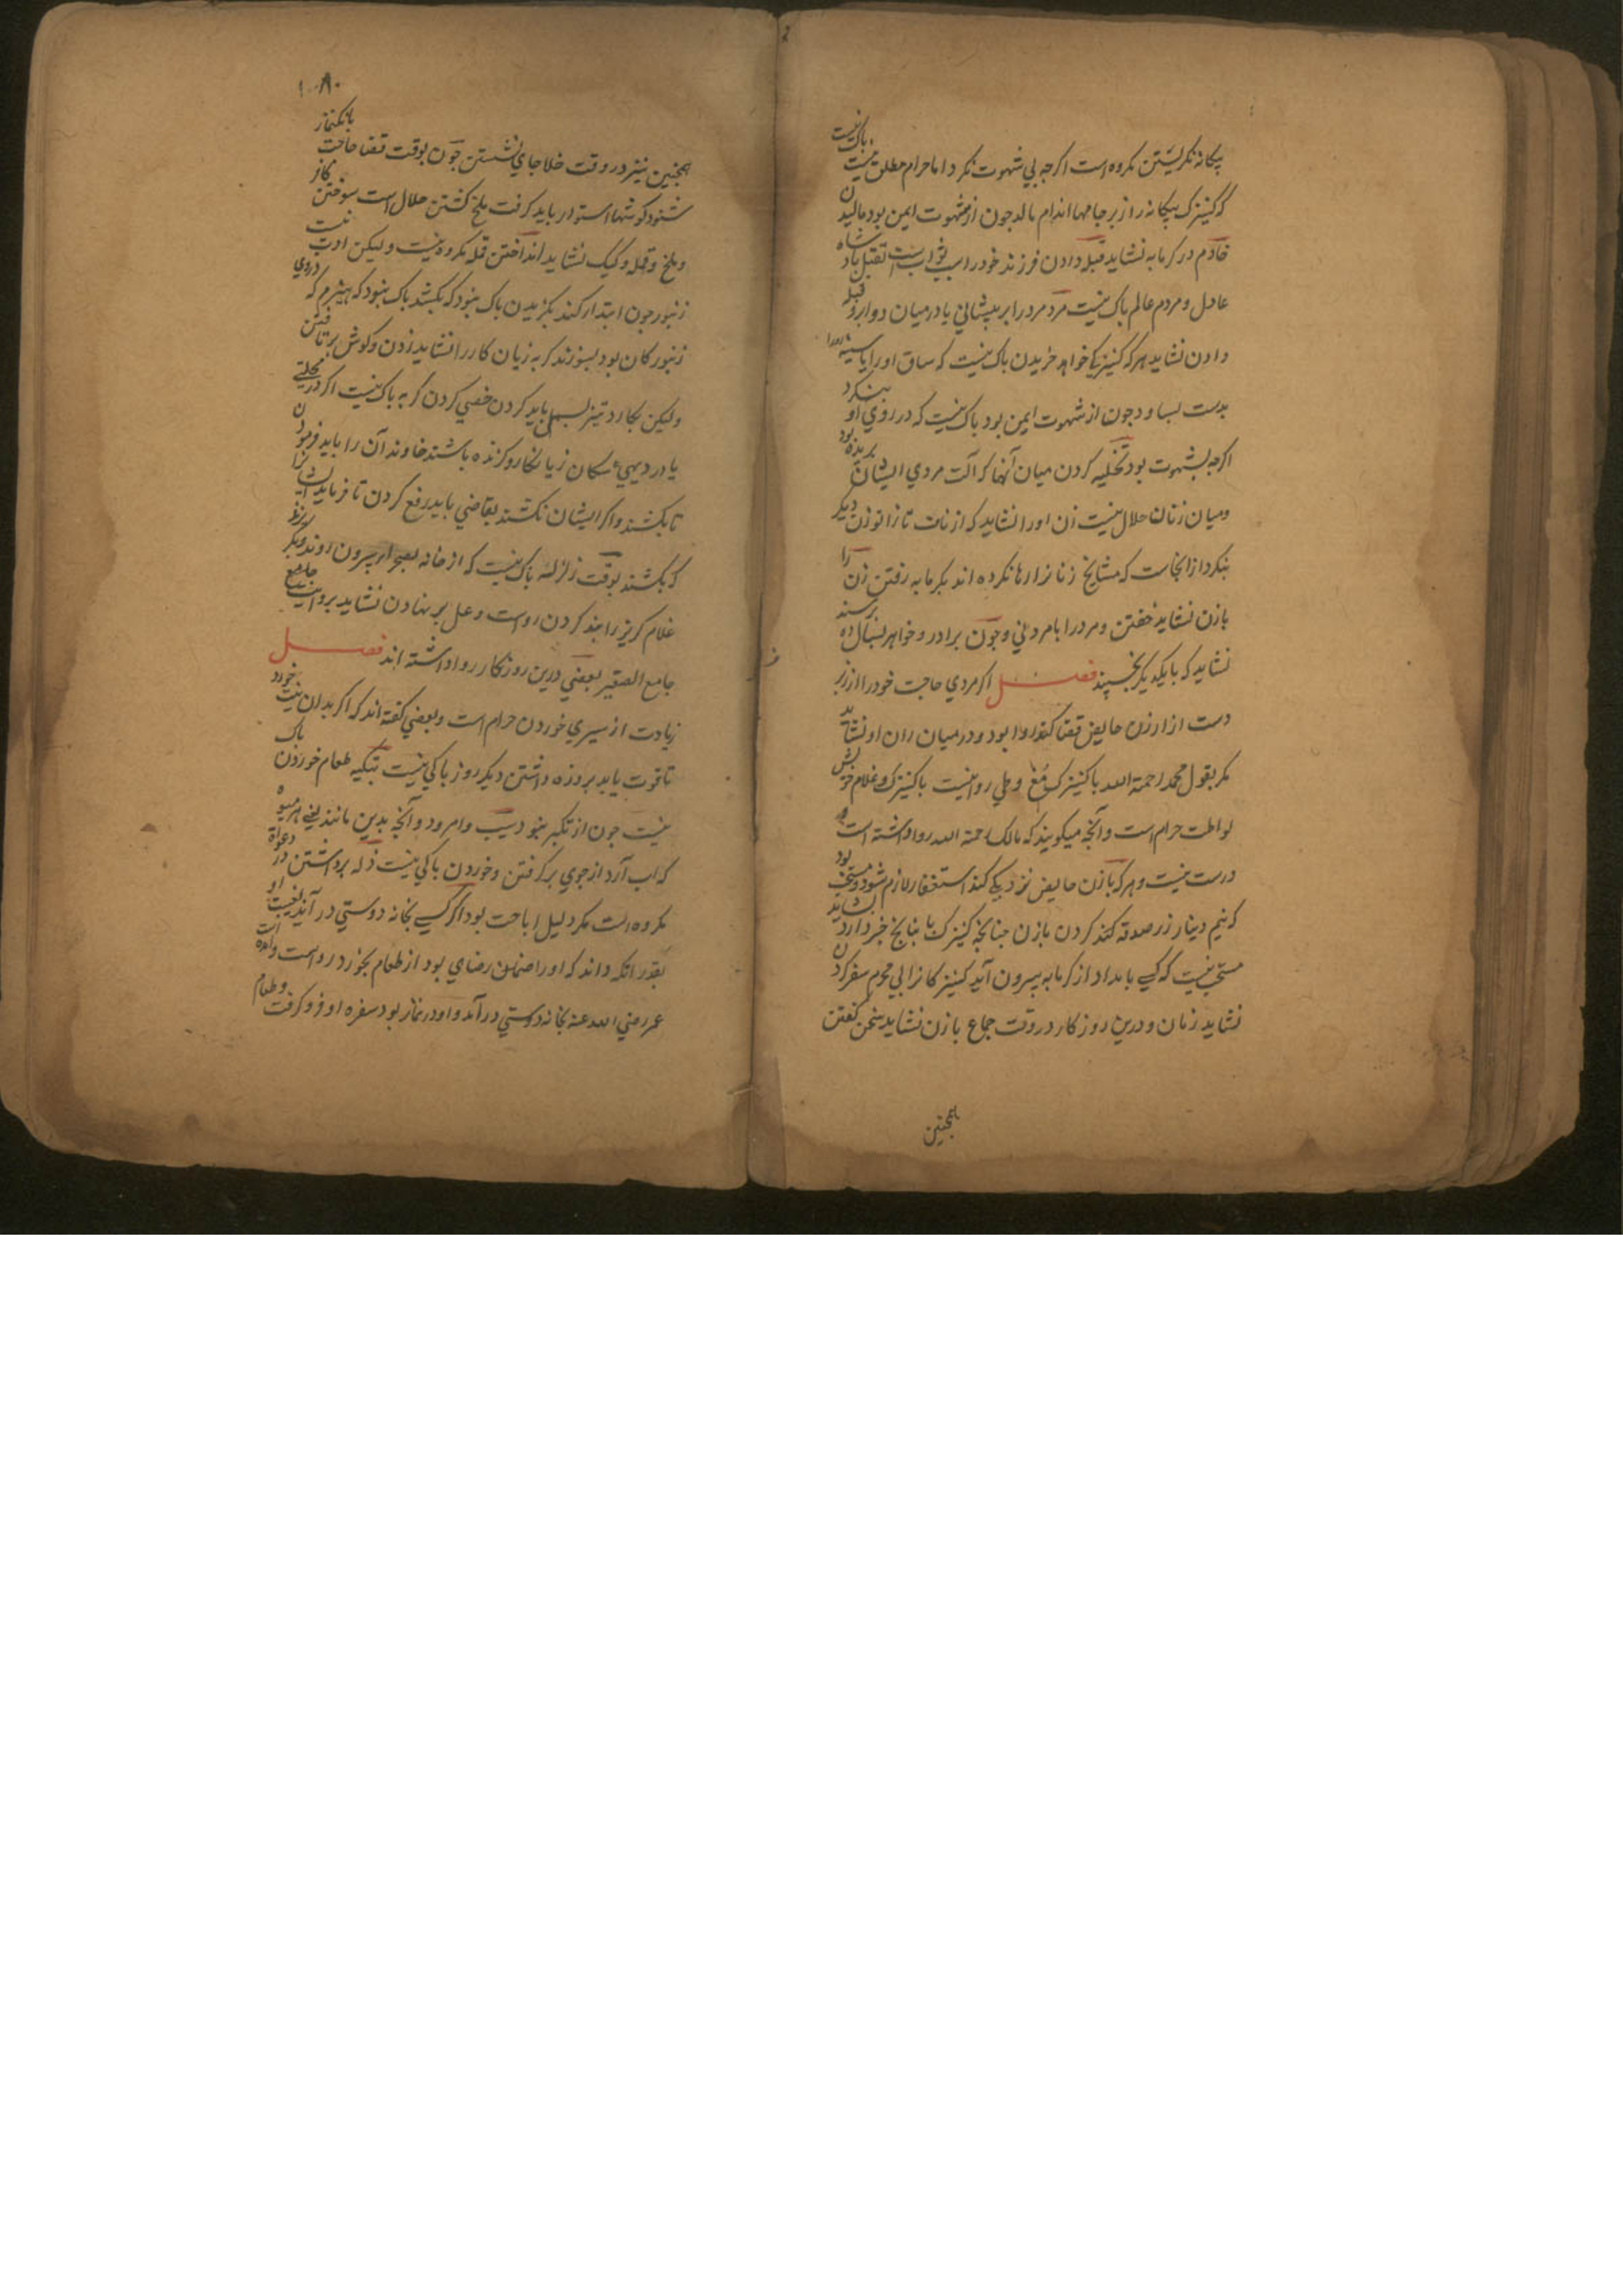 بیکانه نکریستن مکروه است اکرجه بی شهوت نکرد اما حرام مطلق نیست باک نیست
که کنیزک بیکانه را زبر جامها اندام مالد جون از شهوت ایمن بود مالیدن
خادم در کرمابه نشاید قبله دادن فرزند خود را سبب ثوابست تقبیل پادشاه
عادل و مردم عالم باک نیست مرد مرد را بر پیشانی یا در میان دو ابرو قبله
دادن نشاید هرکه کنیزکی خواهد خریدن باک نیست که ساق او را یا سینه
بدست بساود جون از شهوت ایمن بود باک نیست که در روی او بنکرد
اکرجه بشهوت بود تخلیه کردن میان آنها که آلت مردی ایشان بریده بود
ومیان زنان حلال نیست زن او را نشاید که از ناف تا زانو زن دیکر
بنکرد از انجاست که مشایخ زنانرا رها نکرده اند بکرمابه رفتن زن را
با زن نشاید خفتن ومرد را با مرد نی وجون برادر وخواهر بسال ده رسند
نشاید که با یکدیکر بخسپند فصل اکر مردی حاجت خود را از زبر
دست ازار زن حایض قضا کند روا بود ودر میان ران او نشاید
مکر بقول محمد رحمة الله با کنیزک مغ وطی روا نیست با کنیزک وغلام خویش
لواطت حرام است وآنجه میکویند که مالک رحمة الله روا داشته است
درست نیست وهرکه با زن حایض نزدیکی کند استغفار لازم شود ومستحب بود
که نیم دینار زر صدقه کند کردن با زن جنانجه کنیزک خبر دارد نشاید
مستحب نیست که کسی بامداد از کرمابه بیرون آید کنیزکانرا بی محرم سفر کردن
نشاید زنان ودرین روزکار در وقت جماع با زن نشاید سخن کفتن
همجنین
همجنین نیز در وقت خلا جای نشستن جون بوقت قضا حاجت بانکنماز
شنود کوشها استوار باید کرفت ملخ کشتن حلال است سوختن
وملخ وقمله وکیک نشاید انداختن قمله مکروه نیست ولیکن ادب نیست
زنبور جون ابتدا کند بکزیدن باک نبود که بکشد باک نبود که هیزم که دروی
زنبورکان بود بسوزند کربه زیان کار را نشاید زدن وکوش برتافتن
ولیکن بکارد تیز بسمل باید کردن خصی کردن کربه باک نیست اکر در محلتی
یا در دیهی سکان زیانکار وکزنده باشند خاوند آن را باید فرمودن
تا بکشند واکر ایشان نکشند بقاضی باید رفع کردن تا فرماید ایشانرا
که بکشند بوقت زلزله باک نیست که از خانه بصحرا بیرون روند وبکریزند
غلام کریز را بند کردن رواست وغل بر نهادن نشاید بروایت جامع
جامع الصغیر بعضی درین روزکار روا داشته اند فصل
زیادت از سیری خوردن حرام است وبعضی کفته اند که اکر بدان نیت خورد
تا قوت یابد بروزه داشتن دیکر روز باکی نیست بتکیه طعام خوردن باک
نیست جون از تکبر نبود سیب وامرود وآنجه بدین مانند یعنی هر میوه
که آب آرد از جوی برکرفتن وخوردن باکی نیست زله برداشتن در دعوة
مکروه است مکر دلیل اباحت بود اکر کسی بخانه دوستی در آید بغیبت او
بقدر انکه داند که او را ضمان رضای بود از طعام بخورد رواست وآمده است
عمر رضی الله عنه بخانه دوستی در آمد واو در نماز بود سفره او فرو کرفت وطعام